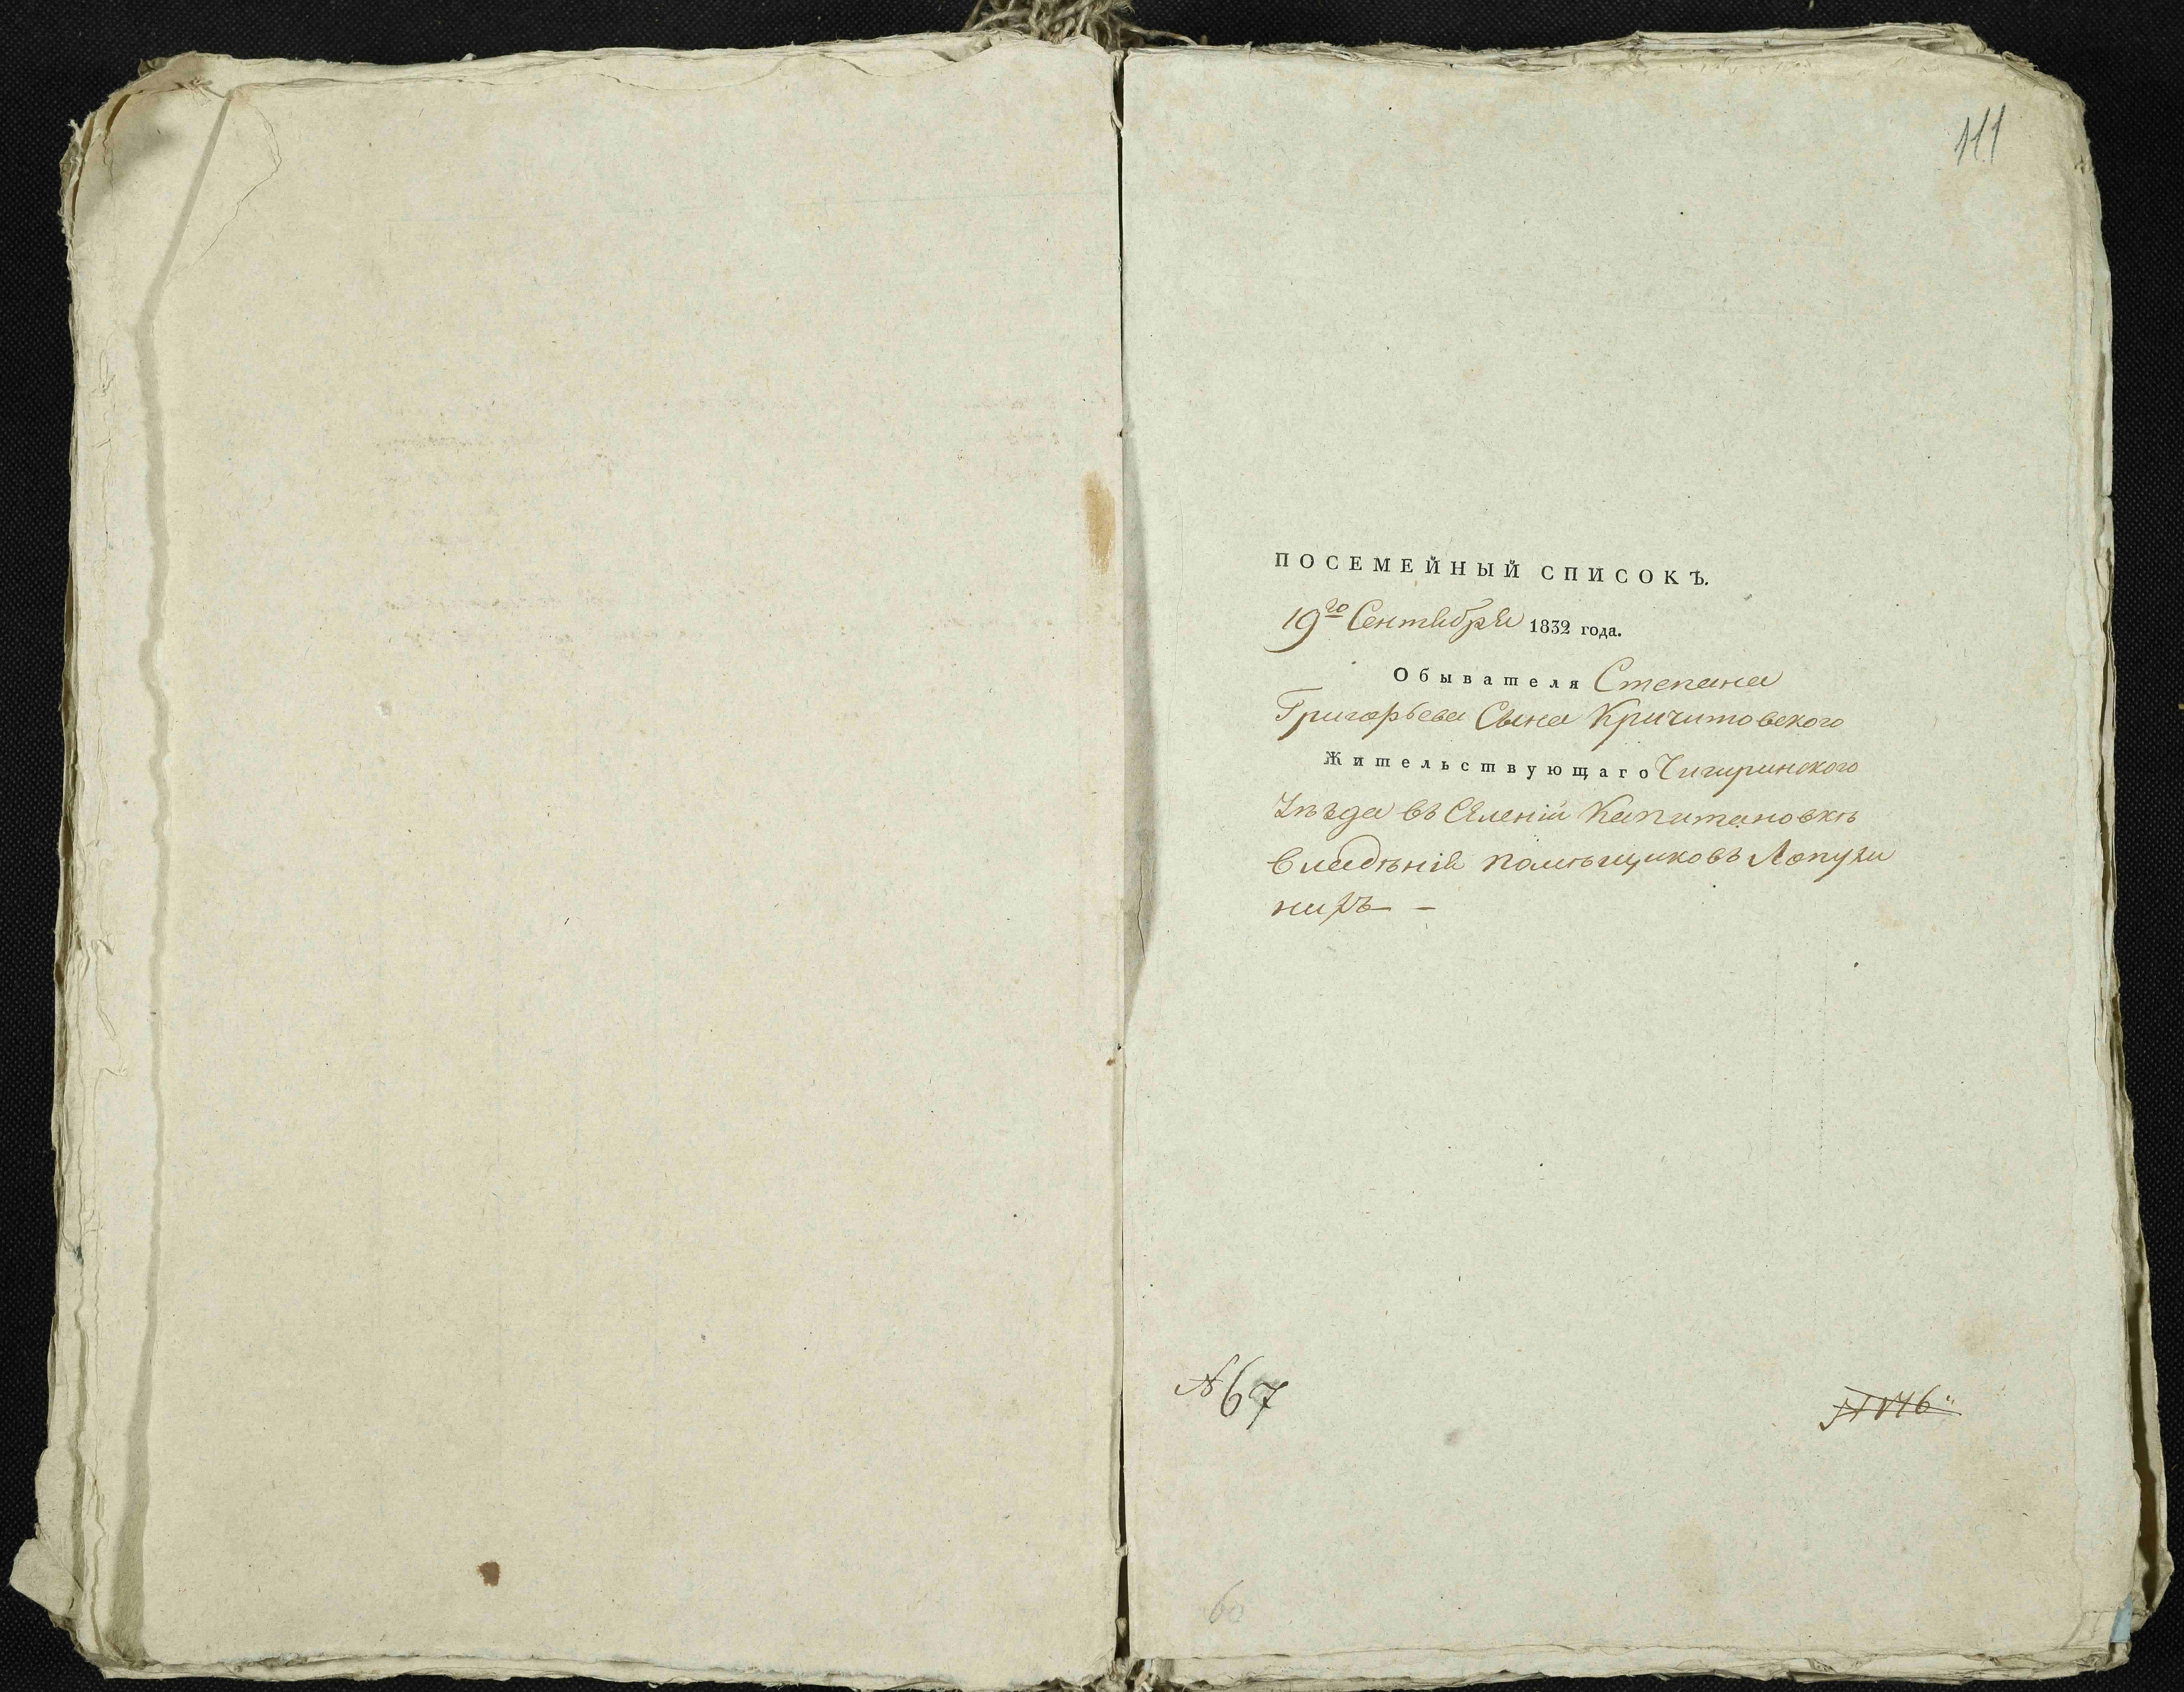 111
ПОСЕМЕЙНЫЙ СПИСОКЪ.
19го Сентября 1832 года.
Обывателя Степана
Григорьева Сына Кричитовского
Жительствующаго Чигиринского
въ Селеніи Капитановкѣ
владѣнія помѣщиковъ Лопухи
нихъ —
№ 67
60